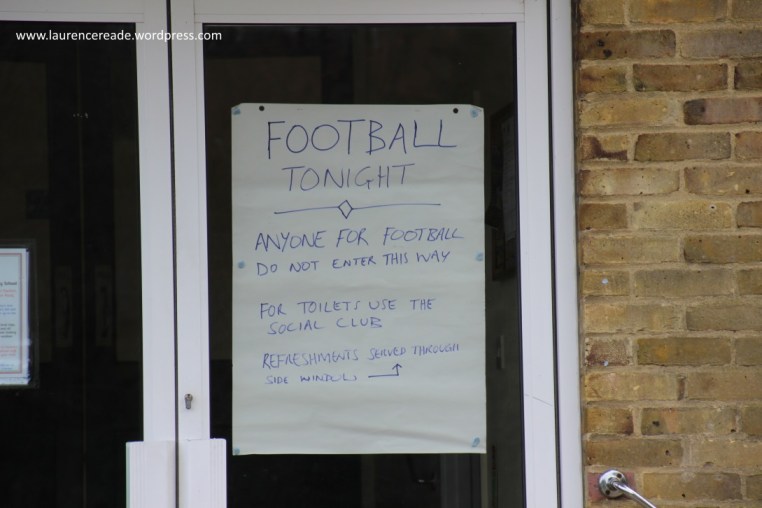 www.laurencereade.wordpress.com
FOOTBALL
TONIGHT
ANYONE FOR FOOTBALL
DO NOT ENTER THIS WAY
FOR TOILETS USE THE
SOCIAL CLUB
REFRESHMENTS SERVED THROUGH
SIDE WINDOW